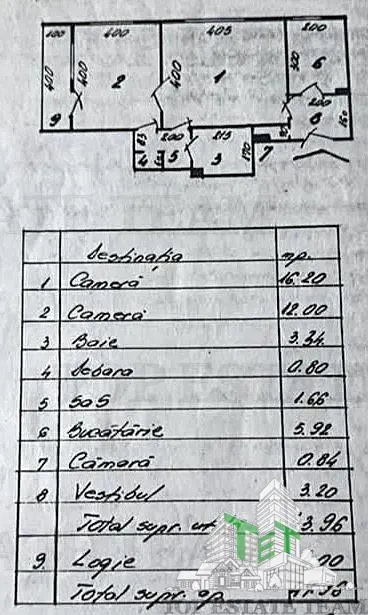 100 400 405 200
400 400 2 400 1 300 6
200
9 83 200 215 8 160
4 5 3 170 7
Destinația mp.
1 Cameră 16.20
2 Cameră 12.00
3 Baie 3.34
4 Debara 0.80
5 SaS 1.66
6 Bucătărie 5.92
7 Cămară 0.84
8 Vestibul 3.20
Total supr. ut 3.96
9. Logie .00
Total supr. ap.
TET